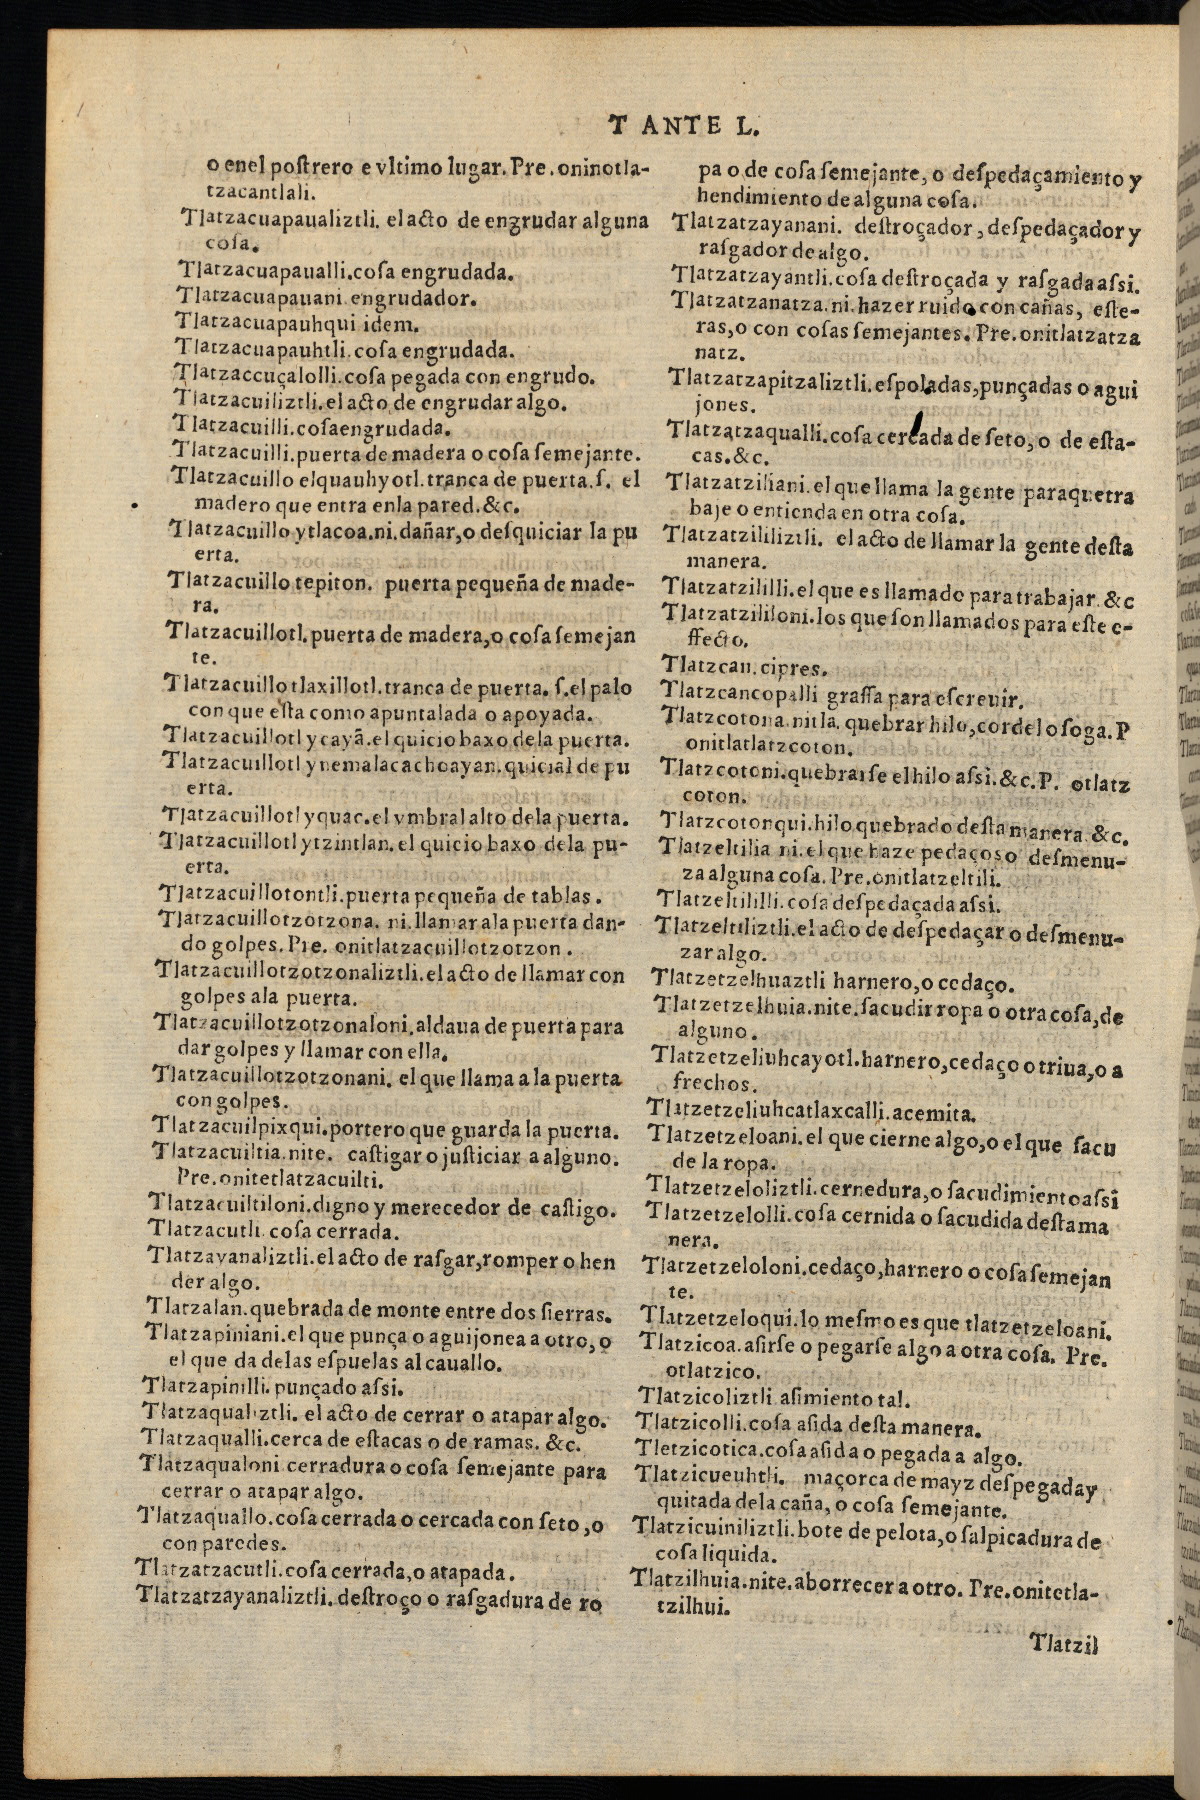 T ANTE L.
o enel poſtrero e vltimo lugar. Pre. oninotla-
tzacantlali.
Tlatzacuapaualiztli. el acto de engrudar alguna
coſa.
Tlatzacuapaualli. coſa engrudada.
Tlatzacuapauani. engrudador.
Tlatzacuapauhqui idem.
Tlatzacuapauhtli. coſa engrudada.
Tlatzaccuçalolli. coſa pegada con engrudo.
Tlatzacuiliztli. el acto de engrudar algo.
Tlatzacuilli. coſa engrudada.
Tlatzacuilli. puerta de madera o coſa ſemejante.
Tlatzacuillo elquauhyotl. tranca de puerta. ſ. el
madero que entra enla pared. &c.
Tlatzacuillo ytlacoa. ni. dañar, o deſquiciar la pu
erta.
Tlatzacuillo tepiton. puerta pequeña de made-
ra.
Tlatzacuillotl. puerta de madera, o coſa ſemejan
te.
Tlatzacuillotlaxillotl. tranca de puerta. ſ. el palo
con que eſta como apuntalada o apoyada.
Tlatzacuillotl ycayã. el quicio baxo dela puerta.
Tlatzacuillotl ynemalacachoayan. quicial de pu
erta.
Tlatzacuillotl yquac. el vmbral alto dela puerta.
Tlatzacuillotl ytzintlan. el quicio baxo dela pu-
erta.
Tlatzacuillotontli. puerta pequeña de tablas.
Tlatzacuillotzotzona. ni. llamar ala puerta dan-
do golpes. Pre. onitlatzacuillotzotzon.
Tlatzacuillotzotzonaliztli. el acto de llamar con
golpes ala puerta.
Tlatzacuillotzotzonaloni. aldaua de puerta para
dar golpes y llamar con ella.
Tlatzacuillotzotzonani. el que llama a la puerta
con golpes.
Tlatzacuilpixqui. portero que guarda la puerta.
Tlatzacuiltia. nite. caſtigar o juſticiar a alguno.
Pre. onitetlatzacuilti.
Tlatzacuiltiloni. digno y merecedor de caſtigo.
Tlatzacutli. coſa cerrada.
Tlatzayanaliztli. el acto de raſgar, romper o hen
der algo.
Tlatzalan. quebrada de monte entre dos ſierras.
Tlatzapiniani. el que punça o aguijonea a otro, o
el que da delas eſpuelas al cauallo.
Tlatzapinilli. punçado aſsi.
Tlatzaqualiztli. el acto de cerrar o atapar algo.
Tlatzaqualli. cerca de eſtacas o de ramas. &c.
Tlatzaqualoni cerradura o coſa ſemejante para
cerrar o atapar algo.
Tlatzaquallo. coſa cerrada o cercada con ſeto, o
con paredes.
Tlatzatzacutli. coſa cerrada, o atapada.
Tlatzatzayanaliztli. deſtroço o raſgadura de ro
pa o de coſa ſemejante, o deſpedaçamiento y
hendimiento de alguna coſa.
Tlatzatzayanani. deſtroçador, deſpedaçador y
raſgador de algo.
Tlatzatzayantli. coſa deſtroçada y raſgada aſsi.
Tlatzatzanatza. ni. hazer ruido con cañas, eſte-
ras, o con coſas ſemejantes. Pre. onitlatzatza
natz.
Tlatzatzapitzaliztli. eſpoladas, punçadas o agui
jones.
Tlatzatzaqualli. coſa cercada de ſeto, o de eſta-
cas. &c.
Tlatzatziliani. el que llama la gente paraquetra
baje o entienda en otra coſa.
Tlatzatzililiztli. el acto de llamar la gente deſta
manera.
Tlatzatzililli. el que es llamado para trabajar. &c
Tlatzatzililoni. los que ſon llamados para eſte e-
ffecto.
Tlatzcan. cipres.
Tlatzcancopalli graſſa para eſcreuir.
Tlatzcotona. nitla. quebrar hilo, cordel o ſoga. P
onitlatlatzcoton.
Tlatzcotoni. quebrarſe el hilo aſsi. &c. P. otlatz
coton.
Tlatzcotonqui. hilo quebrado deſta manera. &c.
Tlatzeltilia ni. el que haze pedaços o deſmenu-
za alguna coſa. Pre. onitlatzeltili.
Tlatzeltililli. coſa deſpedaçada aſsi.
Tlatzeltiliztli. el acto de deſpedaçar o deſmenu-
zar algo.
Tlatzetzelhuaztli harnero, o cedaço.
Tlatzetzelhuia. nite. ſacudir ropa o otra coſa, de
alguno.
Tlatzetzeliuhcayotl. harnero, cedaço o triua, o a
frechos.
Tlatzetzeliuhcatlaxcalli. acemita.
Tlatzetzeloani. el que cierne algo, o el que ſacu
de la ropa.
Tlatzetzeloliztli. cernedura, o ſacudimiento aſsi
Tlatzetzelolli. coſa cernida o ſacudida deſta ma
nera.
Tlatzetzeloloni. cedaço, harnero o coſa ſemejan
te.
Tlatzetzeloqui. lo meſmo es que tlatzetzeloani.
Tlatzicoa. aſirſe o pegarſe algo a otra coſa. Pre.
otlatzico.
Tlatzicoliztli. aſimiento tal.
Tlatzicolli. coſa aſida deſta manera.
Tletzicotica. coſa aſida o pegada a algo.
Tlatzicueuhtli. maçorca de mayz deſpegada y
quitada dela caña, o coſa ſemejante.
Tlatzicuiniliztli. bote de pelota, o ſalpicadura de
coſa liquida.
Tlatzilhuia. nite. aborrecer a otro. Pre. onitetla-
tzilhui.
Tlatzil